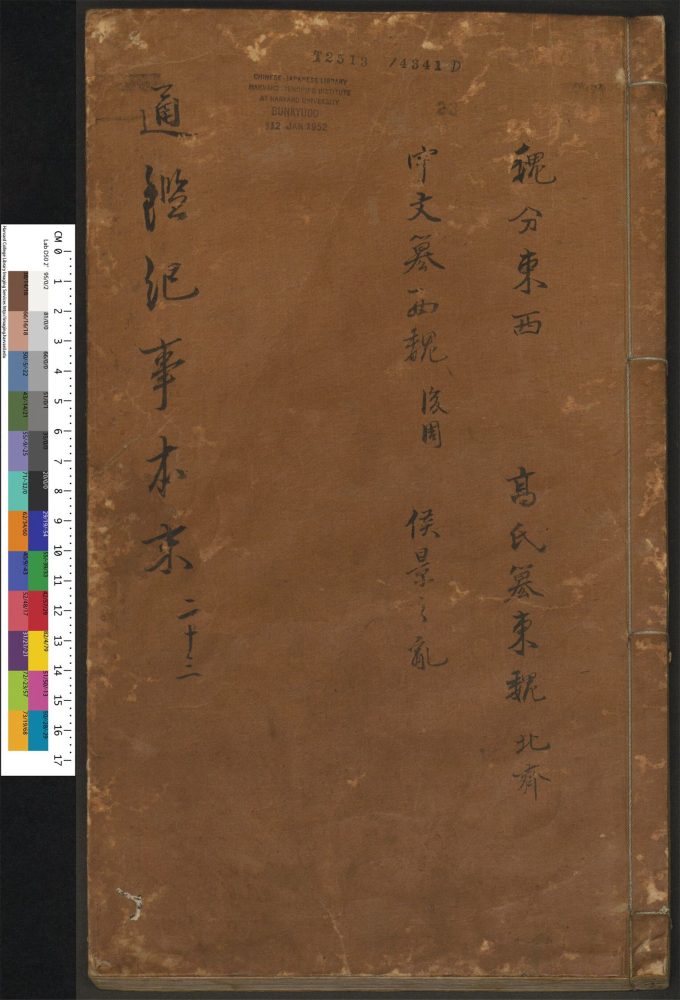 T2513 /4341 D
CHINESE-JAPANESE LIBRARY
HARVARD-YENCHING INSTITUTE
AT HARVARD UNIVERSITY
BUNKYUDO
JAN 1952
23
魏分東西 高氏篡東魏 北齊
宇文篡西魏 後周 侯景之亂
通鑑紀事本末 二十三
CM 0 1 2 3 4 5 6 7 8 9 10 11 12 13 14 15 16 17
Harvard College Library Imaging Services